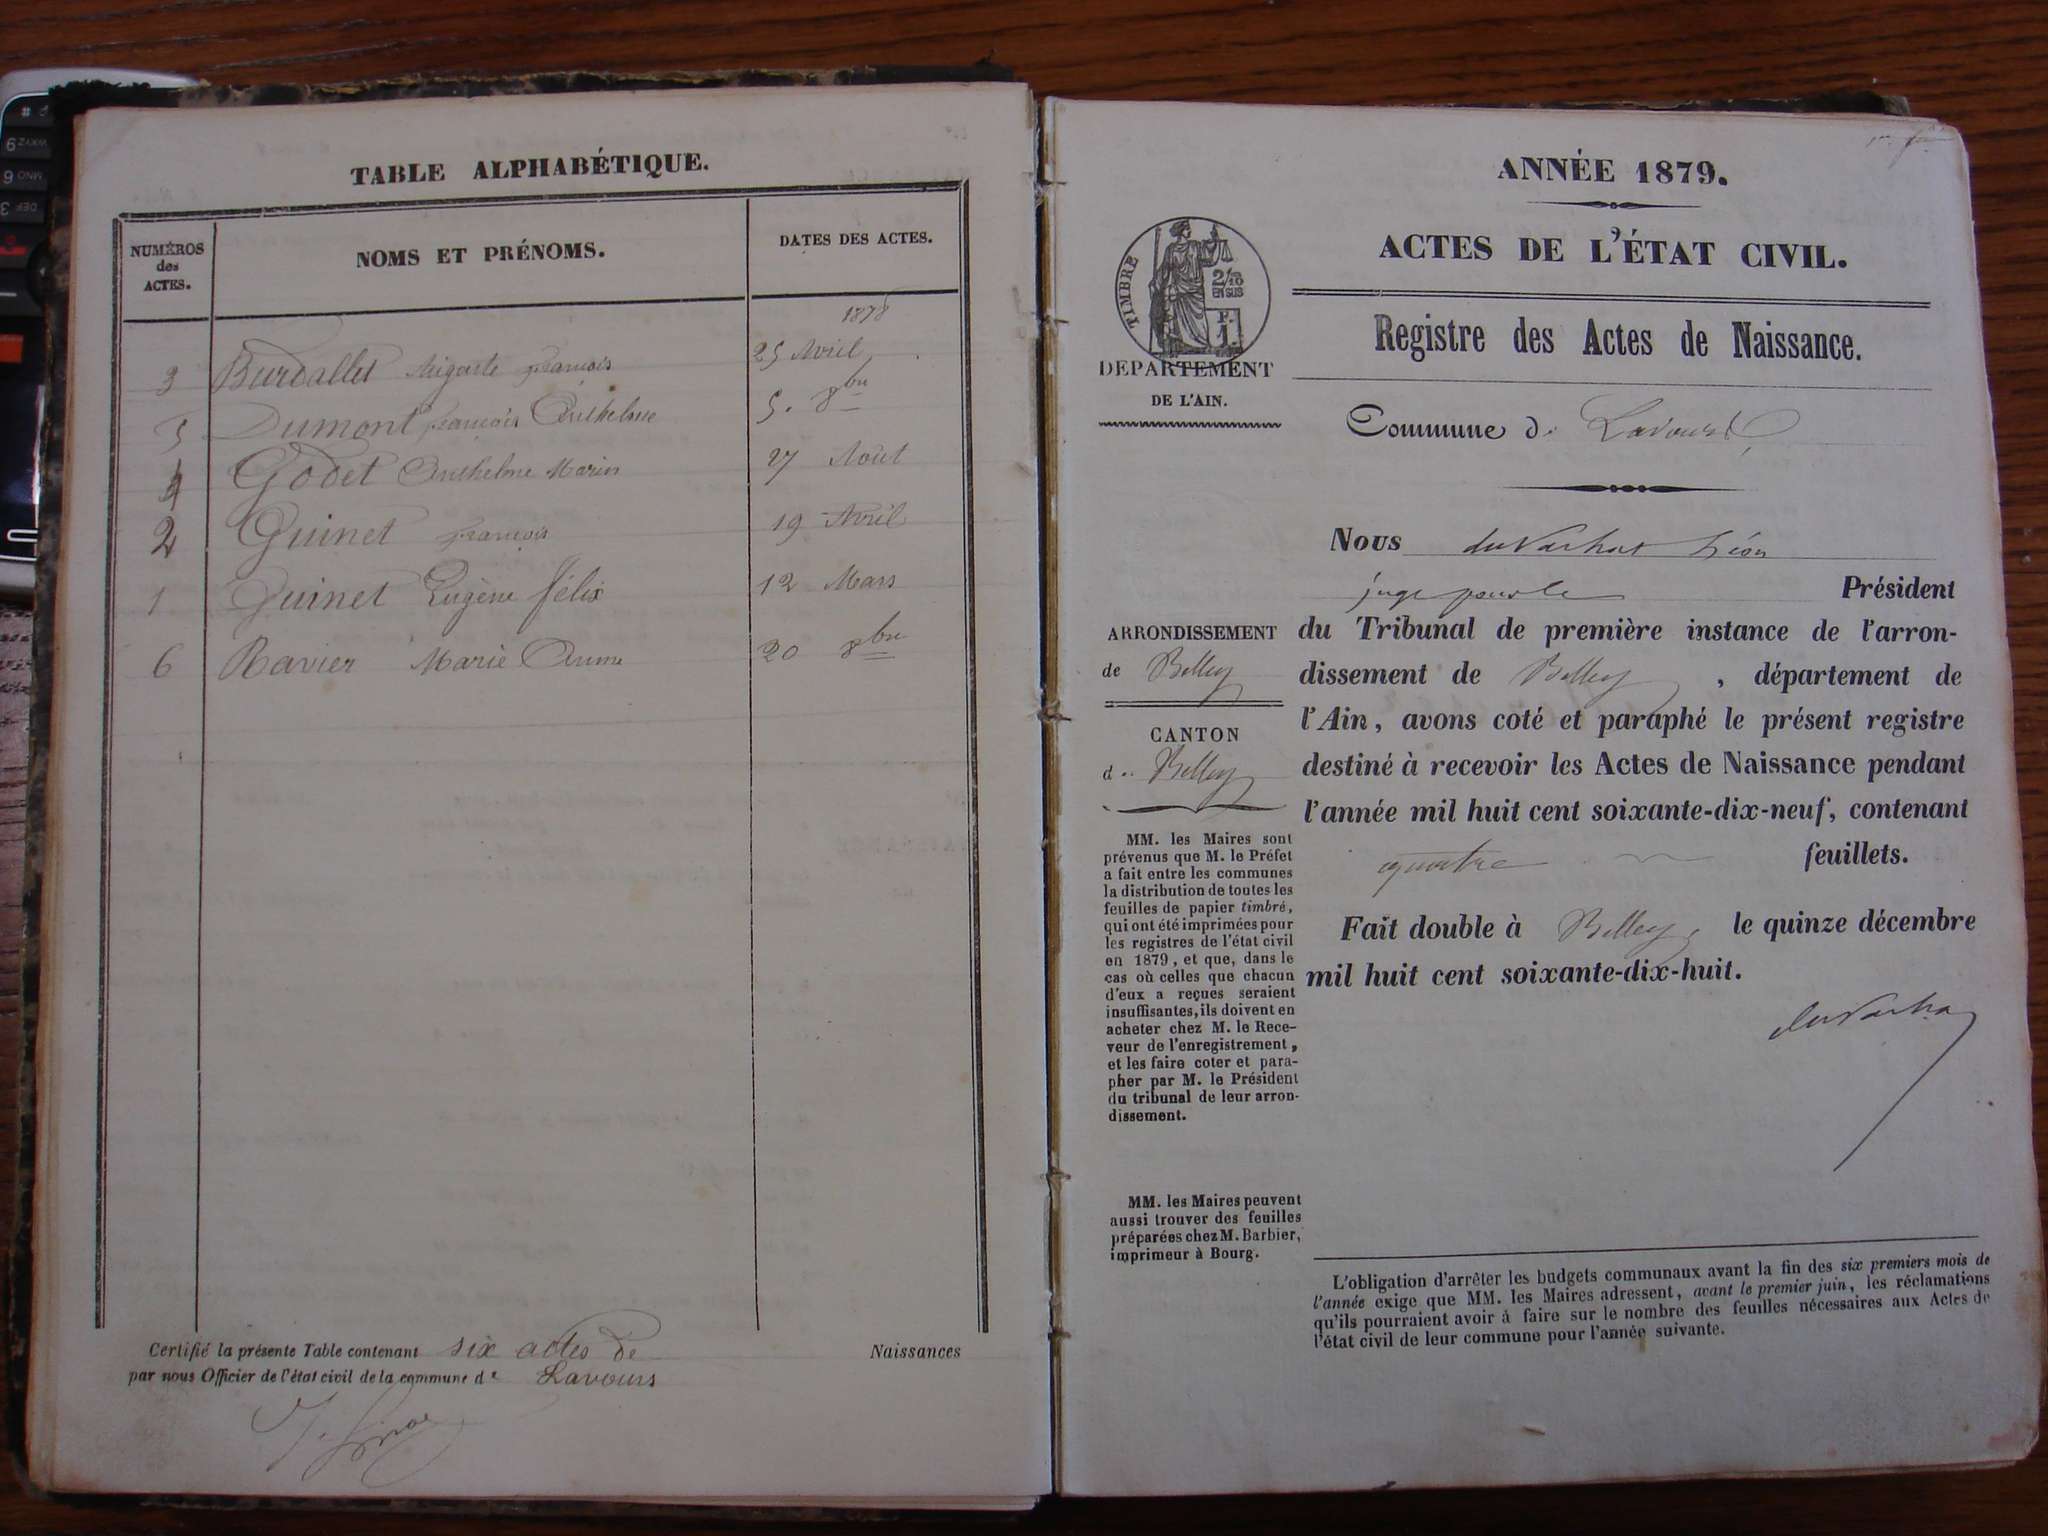 TABLE ALPHABÉTIQUE.
NUMÉROS des ACTES.
NOMS ET PRÉNOMS.
DATES DES ACTES.
1878
3 Burdallet François 25 Avril
5 Dumont françois Anthelme 5. 8bre
4 Godet Anthelme Marin 27 Août
2 Guinet françois 19 Avril
1 Guinet Eugène félix 12 Mars
6 Ravier Marie 20 8bre
Certifié la présente Table contenant six actes de Naissances
par nous Officier de l'état civil de la commune de Lavours
ANNÉE 1879.
ACTES DE L'ÉTAT CIVIL.
TIMBRE
2/10
EN SUS
F.
1
DEPARTEMENT
DE L'AIN.
Registre des Actes de Naissance.
Commune de Lavours
Nous Léon
juge pour le Président
du Tribunal de première instance de l'arron-
dissement de Belley, département de
l'Ain, avons coté et paraphé le présent registre
destiné à recevoir les Actes de Naissance pendant
l'année mil huit cent soixante-dix-neuf, contenant
quatre feuillets.
Fait double à Belley, le quinze décembre
mil huit cent soixante-dix-huit.
ARRONDISSEMENT
de Belley
CANTON
de Belley
MM. les Maires sont
prévenus que M. le Préfet
a fait entre les communes
la distribution de toutes les
feuilles de papier timbré,
qui ont été imprimées pour
les registres de l'état civil
en 1879, et que, dans le
cas où celles que chacun
d'eux a reçues seraient
insuffisantes, ils doivent en
acheter chez M. le Rece-
veur de l'enregistrement,
et les faire coter et para-
pher par M. le Président
du tribunal de leur arron-
dissement.
MM. les Maires peuvent
aussi trouver des feuilles
préparées chez M. Barbier,
imprimeur à Bourg.
L'obligation d'arrêter les budgets communaux avant la fin des six premiers mois de
l'année exige que MM. les Maires adressent, avant le premier juin, les réclamations
qu'ils pourraient avoir à faire sur le nombre des feuilles nécessaires aux Actes de
l'état civil de leur commune pour l'année suivante.